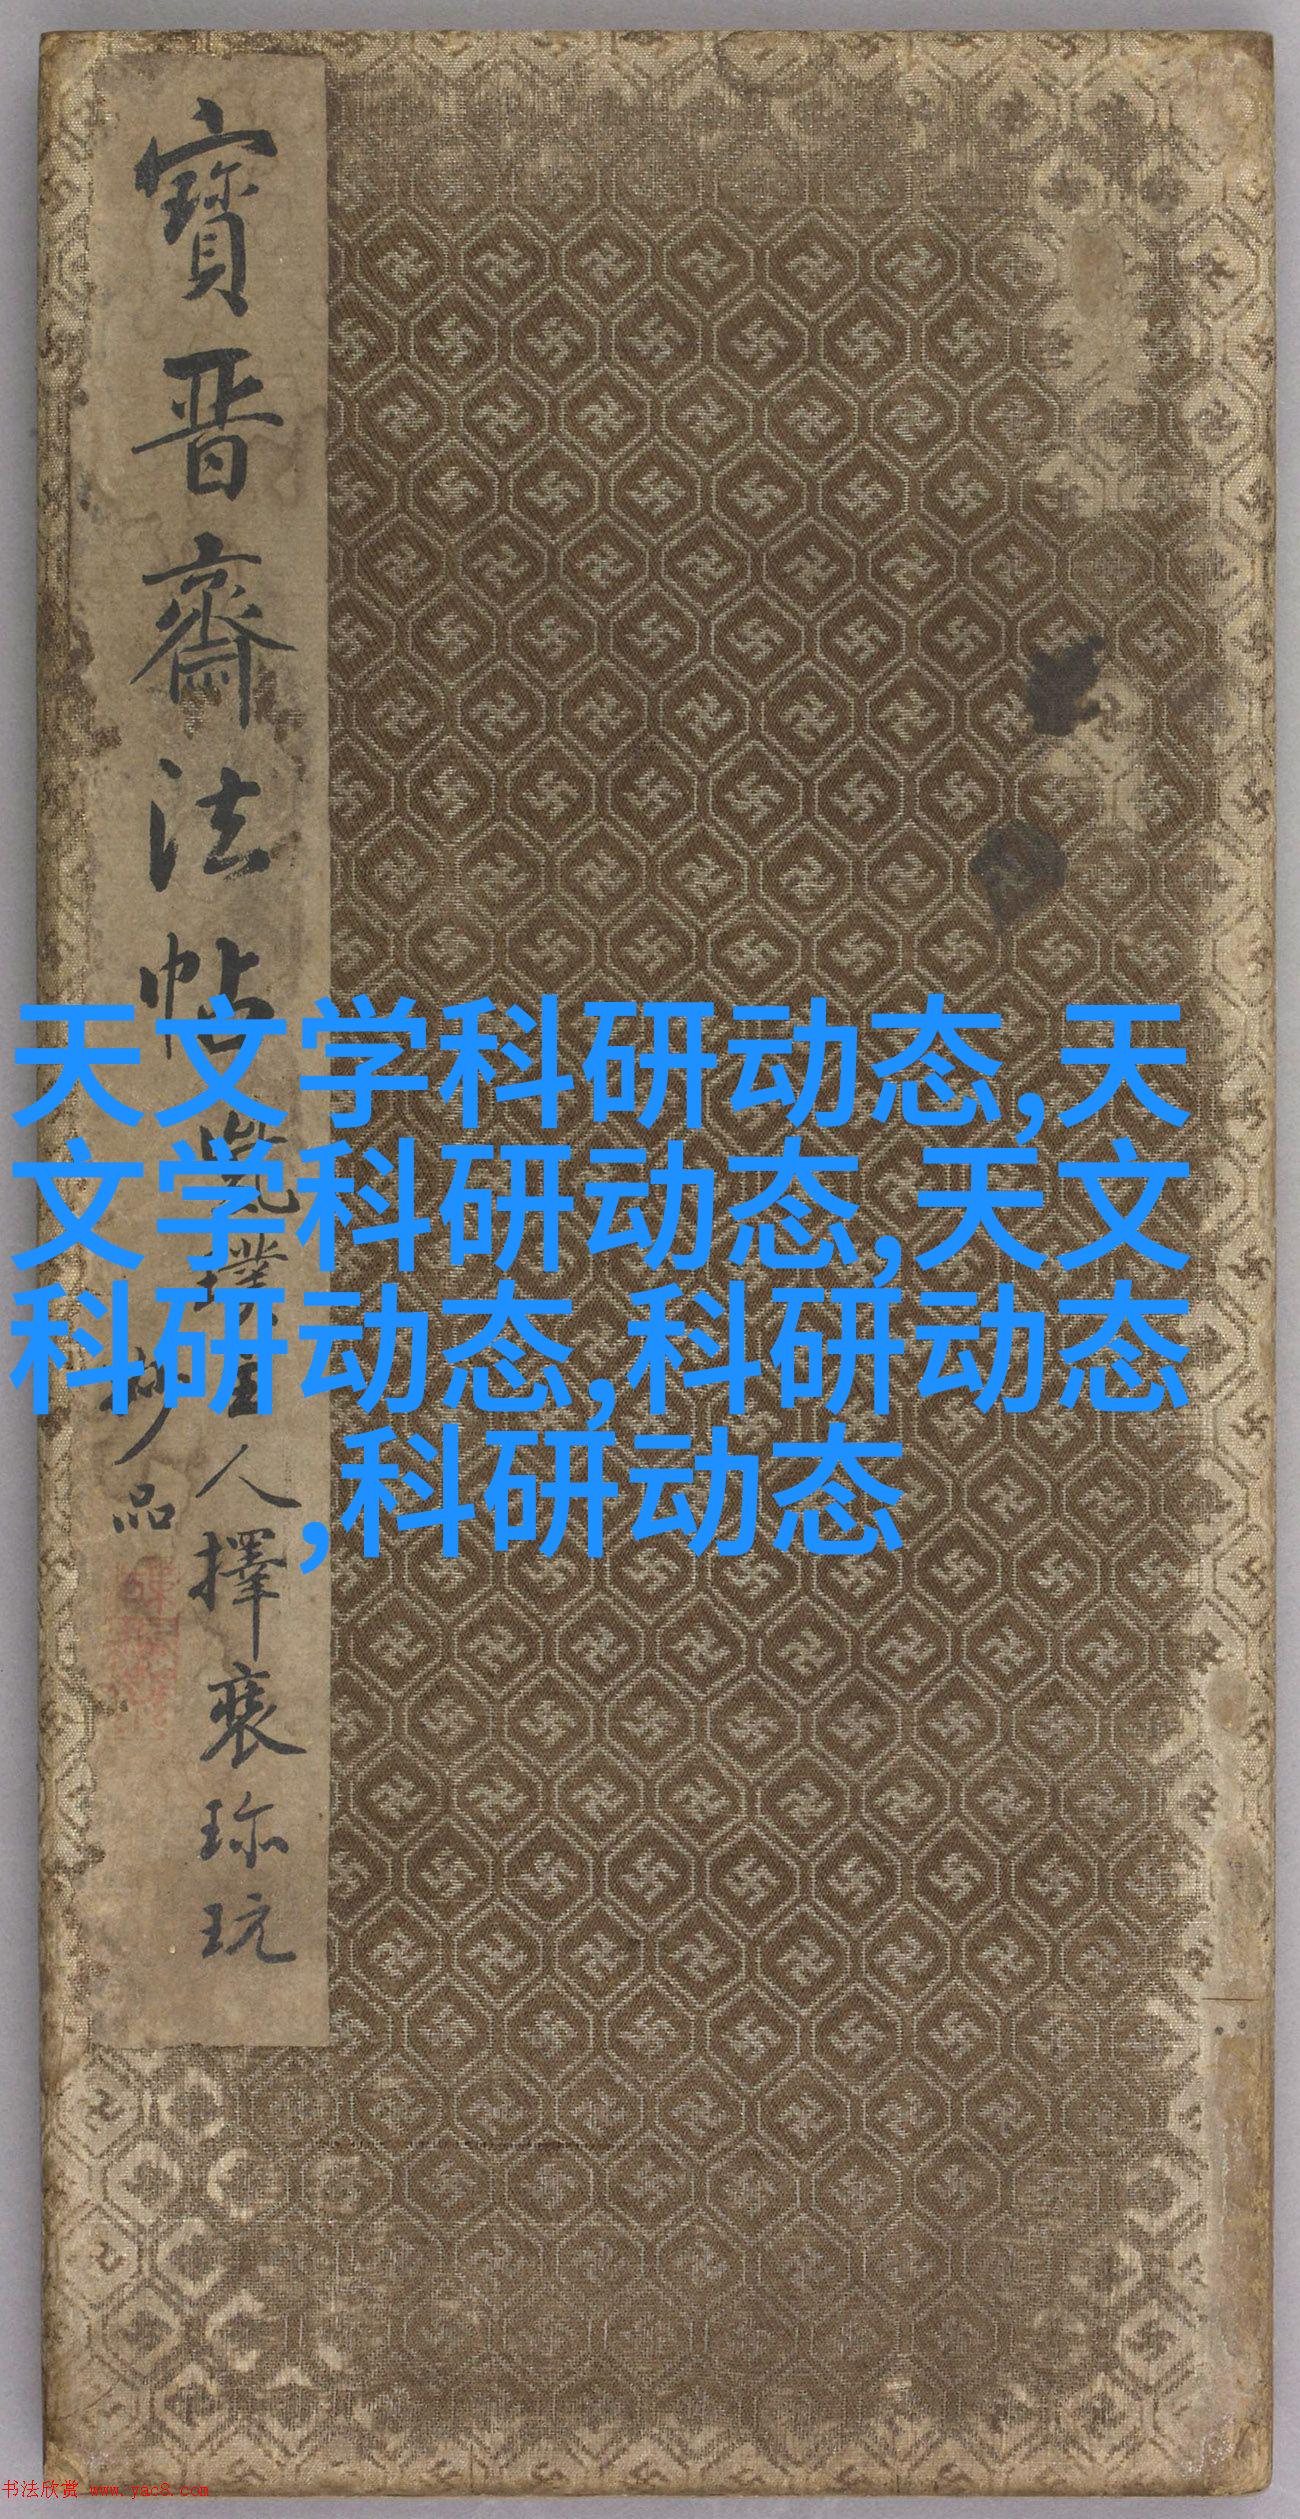 寶晋齋法帖
璞主人擇裘珎玩
妙品
天文学科研动态,天
文学科研动态,天文
科研动态,科研动态
,科研动态
书法欣赏 www.yac8.com